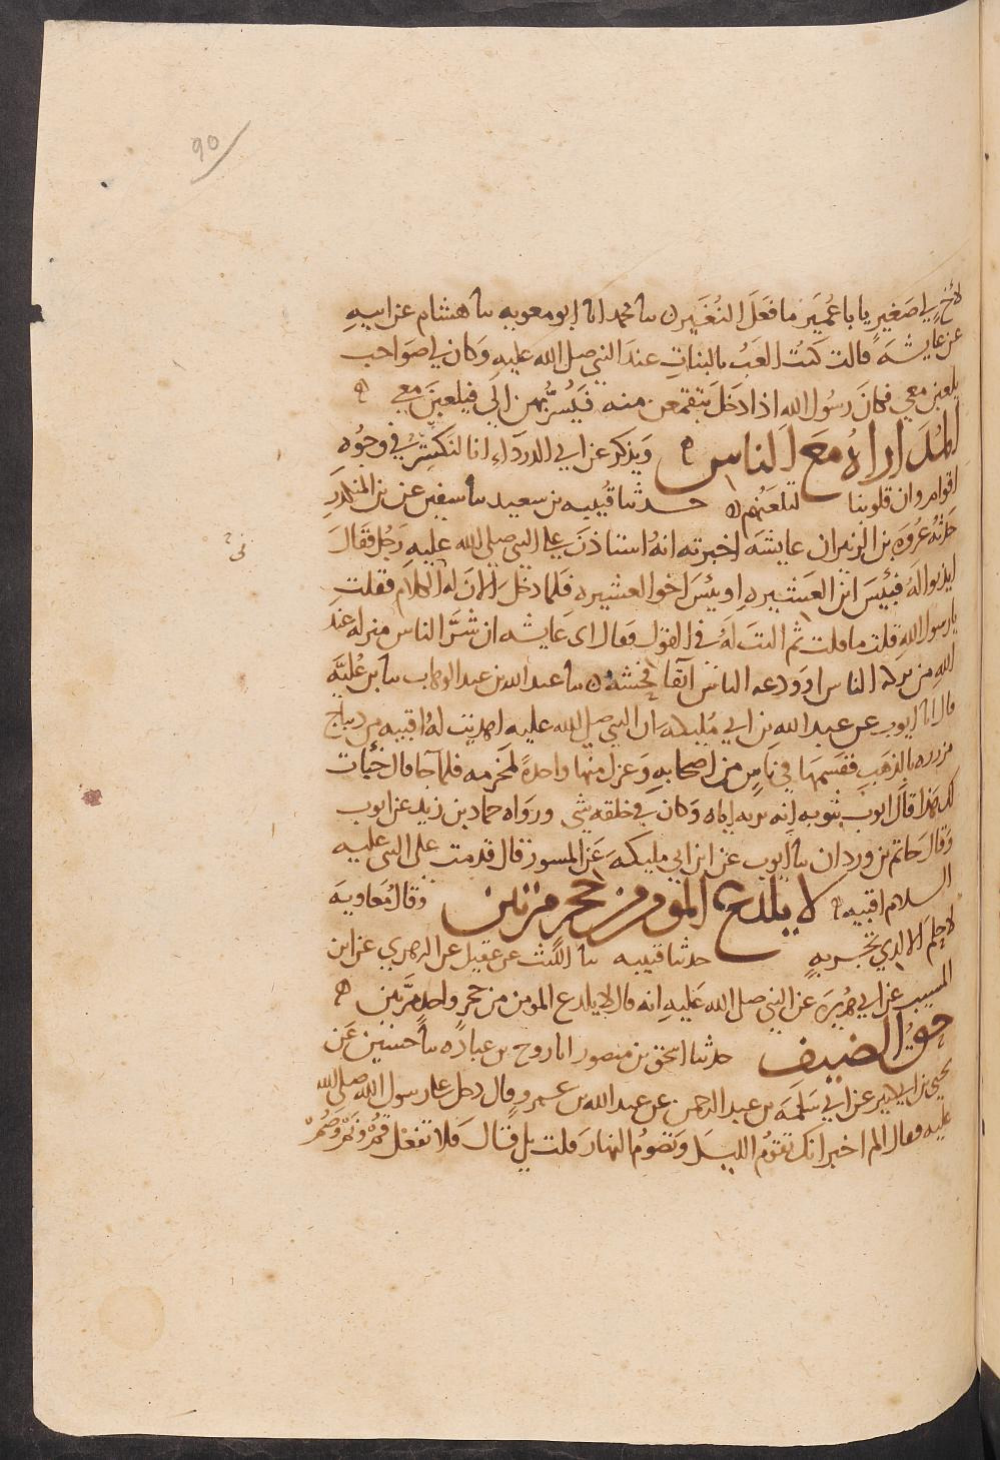 90
لأخ لي صغير يا با عُمَير ما فعَلَ النُغَير ں ںا محمد انا ابو معويه ںا هشام عن ابيهِ
عن عايشة قالت كنتُ العَبُ بالبناتِ عندَ النبي صلى الله عليهِ وكان لي صَواحب
يلعبن معي فكانَ رسُول الله اذا دَخَل يتقمعن منه فيُسرّبُهن الَيّ فيلعبنَ معي ه
المُدَاراةُ مع الناس ه ويذكر عن ابي الدرداء انا لنكشِرُ في وجُوه
اقوام وان قلوبنا لتلعنهم ں حدثنا قتيبه بن سعيد ںا سفين عن بن المنكدر
حدثهُ عُروَة بن الزبير ان عايشَه اخبرته انهُ استاذن على النبي صلى الله عليهِ رَجُل فقَالَ
ايذنوا لهُ فبئسَ ابن العَشيرهِ او بئسَ اخو العشيره فلما دخل الانَ له الكلام فقلت
يا رسول اللهِ قلت ما قلت ثم النتَ لهُ في القول فقال اى عَايشه ان شرَّ الناس منزله عند
اللهِ من تركه الناس او وَدعه الناس اتقا فحشه ں ںا عبد الله بن عبد الوهاب ںا بن عُليَّه
قال انا ايوب عن عبد الله بن ابي مُليكه ان النبي صلى الله عليهِ اهديت لهُ اقبيه من ديباج
مزرره بالذهَب فقسمهَا في ناسٍ من اصحابهِ وعزل منها واحدةً لمخرمه فلما جا قال خبات
لك هَذا قالَ ايوب بثوبه انه يريه اياه وكان في خلقه شى ورواه حماد بن زيد عن ايوب
وقال حَاتم بن وردان ںا ايوب عن ابن ابي مليكهَ عن المسور قال قدمت على النبى عليه
السلام اقبيه ه لا يلدغ المؤمن من جحر مرتين وقال مُعَاويهَ
لا حِلمَ الا لذي تجربهٍ حدثنا قتيبه ںا الليث عن عقيل عن الزهري عن ابن
المسيب عن ابي هُريرَة عن النبي صلى الله عَليهِ انه قال لا يلدغ المومن من جحرٍ واحدٍ مرَّتين ه
حَقُّ الضيف حدثنا اسحق بن منصور انا روح بن عبادَه ںا حُسَين عَن
يحيى بن ابي كثير عن ابي سَلَمَه بن عبد الرحمن عن عبد الله بن عمرو قال دخل علي رسول الله صلى الله
عليه فقال الم اخبر انك تقومُ الليل وتصُومُ النهارَ قلت بلى قال فلا تفعَل قُمْ ونَم وصُمْ